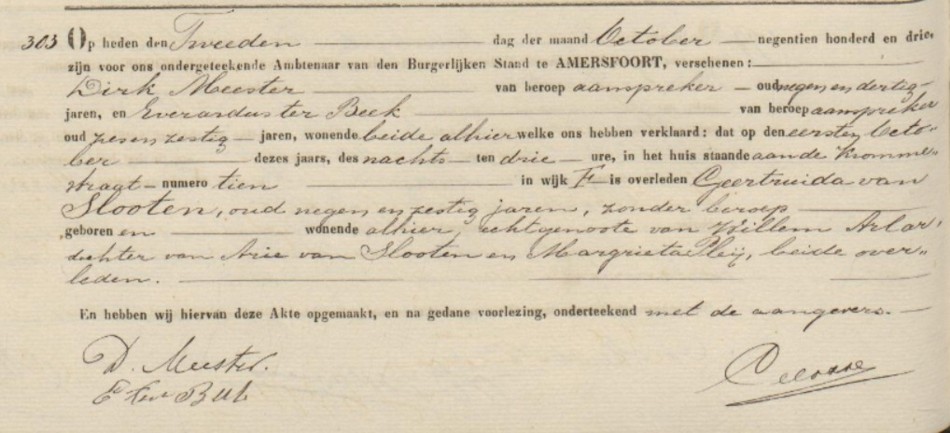 303 Op heden den Tweeden dag der maand October negentien honderd en drie
zijn voor ons ondergeteekende Ambtenaar van den Burgerlijken Stand te AMERSFOORT, verschenen:
Dirk Meester van beroep aanspreker oud negen en dertig
jaren, en Everardus ter Beek van beroep aanspreker
oud zes en zestig jaren, wonende beide alhier welke ons hebben verklaard: dat op den eersten Octo-
ber dezes jaars, des nachts ten drie ure, in het huis staande aan de Kromme-
straat numero tien in wijk F is overleden Geertruida van
Slooten, oud negen en zestig jaren, zonder beroep
geboren en wonende alhier, echtgenoote van Willem
dochter van Arie van Slooten en Margrieta Pleij, beide over-
leden.
En hebben wij hiervan deze Akte opgemaakt, en na gedane voorlezing, onderteekend met de aangevers.
D. Meester.
E ter Bek